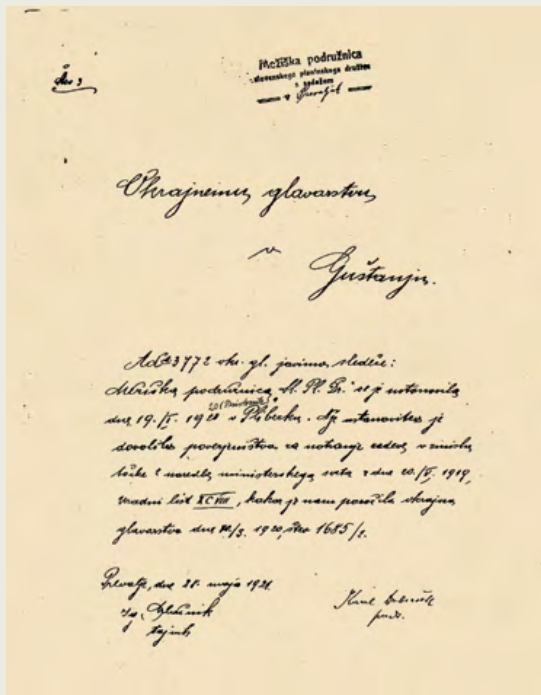 Štev 3
Mežiška podružnica
slovenskega planinskega društva
s sedežem
v Prevaljah
Okrajnemu glavarstvu
v
Guštanju.
Ad № 3772 okr. gl. javimo sledeče:
Mežiška podružnica Sl. Pl. Dr. se je ustanovila
dne 19./I. 1920 v Pliberku. Nje ustanovitev je
dovolilo poverjeništvo za notranje zadeve v smislu
točke naredbe ministerskega sveta z dne 20./V. 1919,
uradni list XCVIII, kakor je nam poročilo okrajno
glavarstvo dne /3. 1920, štev 1685/2.
Prevalje, dne 28. maja 1921.
tajnik
preds.